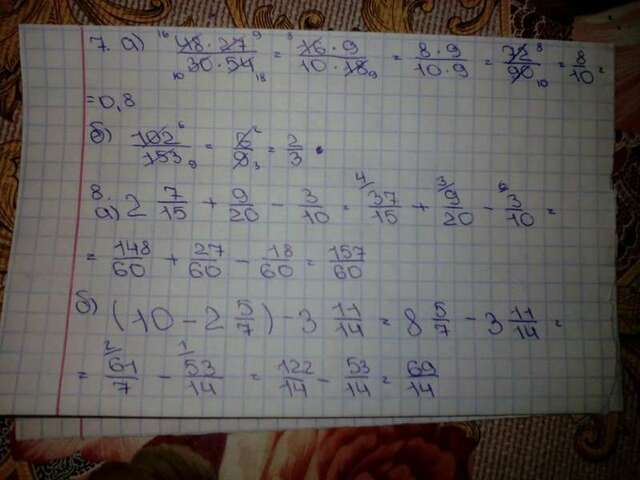 7. а) 16 48 · 27 9 / 10 30 · 54 18 = 8 16 · 9 / 10 · 18 9 = 8 · 9 / 10 · 9 = 72 8 / 90 10 = 8/10 =
= 0,8
б) 102 6 / 153 9 = 6 2 / 9 3 = 2/3 .
8.
а) 2 7/15 + 9/20 - 3/10 = 4/ 37/15 + 3/ 9/20 - 6/ 3/10 =
= 148/60 + 27/60 - 18/60 = 157/60
б) (10 - 2 5/7) - 3 11/14 = 8 5/7 - 3 11/14 =
= 2/ 61/7 - 1/ 53/14 = 122/14 - 53/14 = 69/14